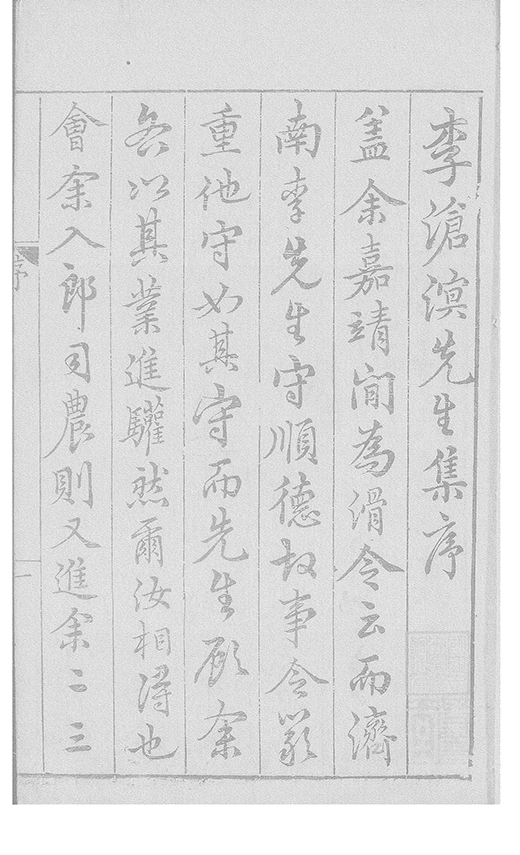 李滄溟先生集序
蓋余嘉靖間為滑令云而濟
南李先生守順德故事令嚴
重他守如其守而先生顧余
各以其業進驩然爾汝相得也
會余入郎司農則又進余二三
序
一